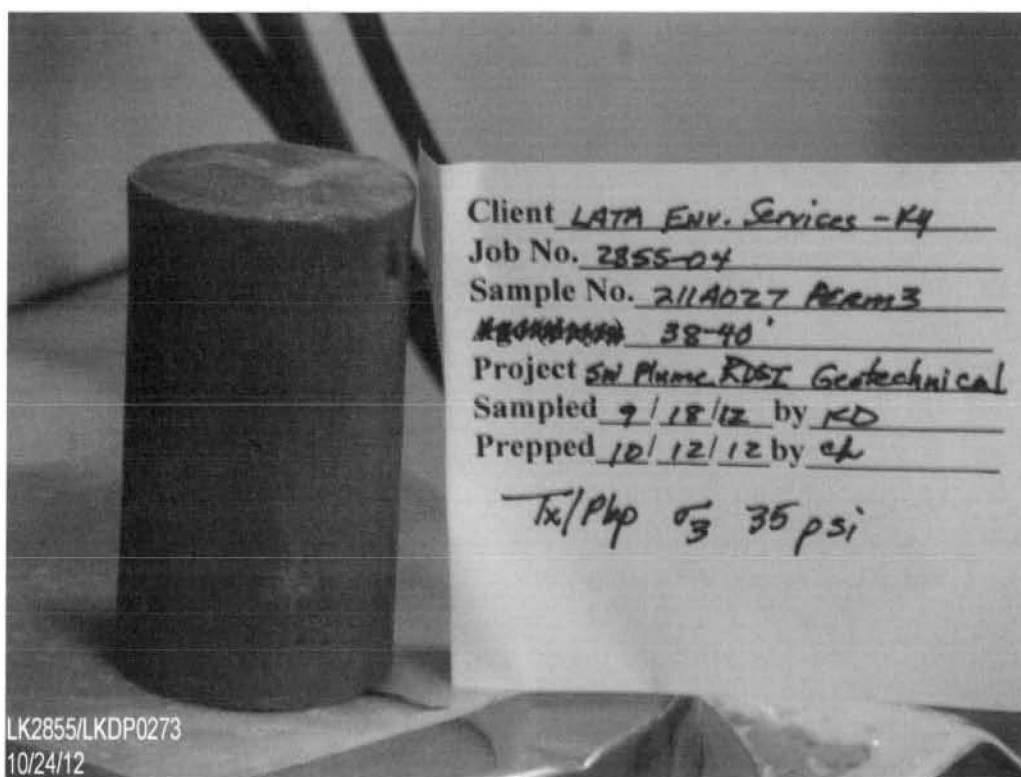 Client LATA Env. Services - KY
Job No. 2855-04
Sample No. 211A027 Perm3
38-40'
Project SW Plume RDSI Geotechnical
Sampled 9/18/12 by KD
Prepped 10/12/12 by
Tx/Pbp σ3 35 psi
LK2855/LKDP0273
10/24/12